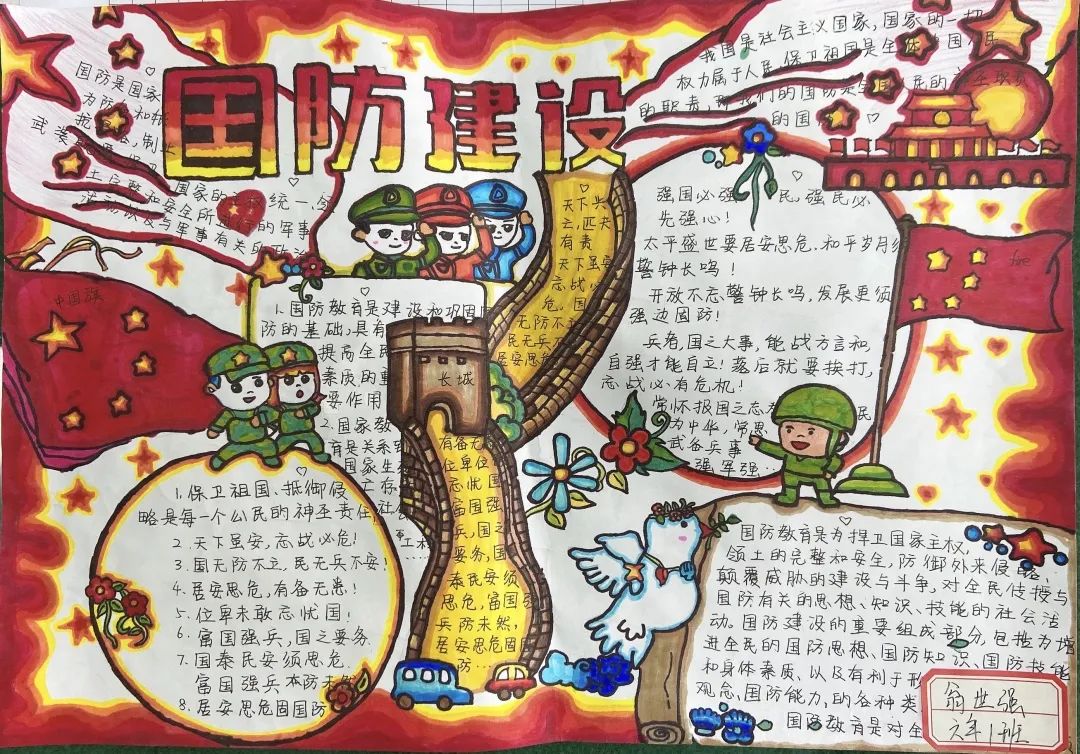 国防建设
国防是国家
为防 和抵
土完整和安全所
国家的主权统一、领
的军事
与军事有关的政治
我国是社会主义国家,国家的一切
权力属于人民,保卫祖国是全体中国人民
的职责,
的国
强国必强 民,强民必
先强心!
太平盛世要居安思危、和平岁月
警钟长鸣!
开放不忘警钟长鸣,发展更须
强边固防!
兵者,国之大事,能战方言和,
自强才能自立!落后就要挨打,
忘战必有危机!
常怀报国之志
为中华,常思
武备兵事
强军强…
天下兴
亡,匹夫
有责
天下虽安
忘战必
危。国
无防不立
民无兵不
居安思危
中国旗
1.国防教育是建设和巩固国
防的基础,具有
提高全民
素质的重
要作用
2.国家教
育是关系到
国家生
亡存
社会
工木
长城
有备无
位卑位
忘忧国
富国强
兵,国之
要务,国
泰民安须
思危,富国强
兵防未然,
居安思危固国
防……
1.保卫祖国、抵御侵
略是每一个公民的神圣责任
2.天下虽安,忘战必危!
3.国无防不立,民无兵不安!
4.居安思危,有备无患!
5.位卑未敢忘忧国!
6.富国强兵,国之要务
7.国泰民安须思危.
富国强兵本防未然
8.居安思危固国防
国防教育是为捍卫国家主权,
领土的完整和安全,防御外来侵略、
颠覆威胁的建设与斗争,对全民传授与
国防有关的思想、知识、技能的社会活
动。国防建设的重要组成部分,包括为增
进全民的国防思想、国防知识、国防技能
和身体素质、以及有利于形
观念、国防能力,的各种类
国防教育是对全
翁世强
六年1班